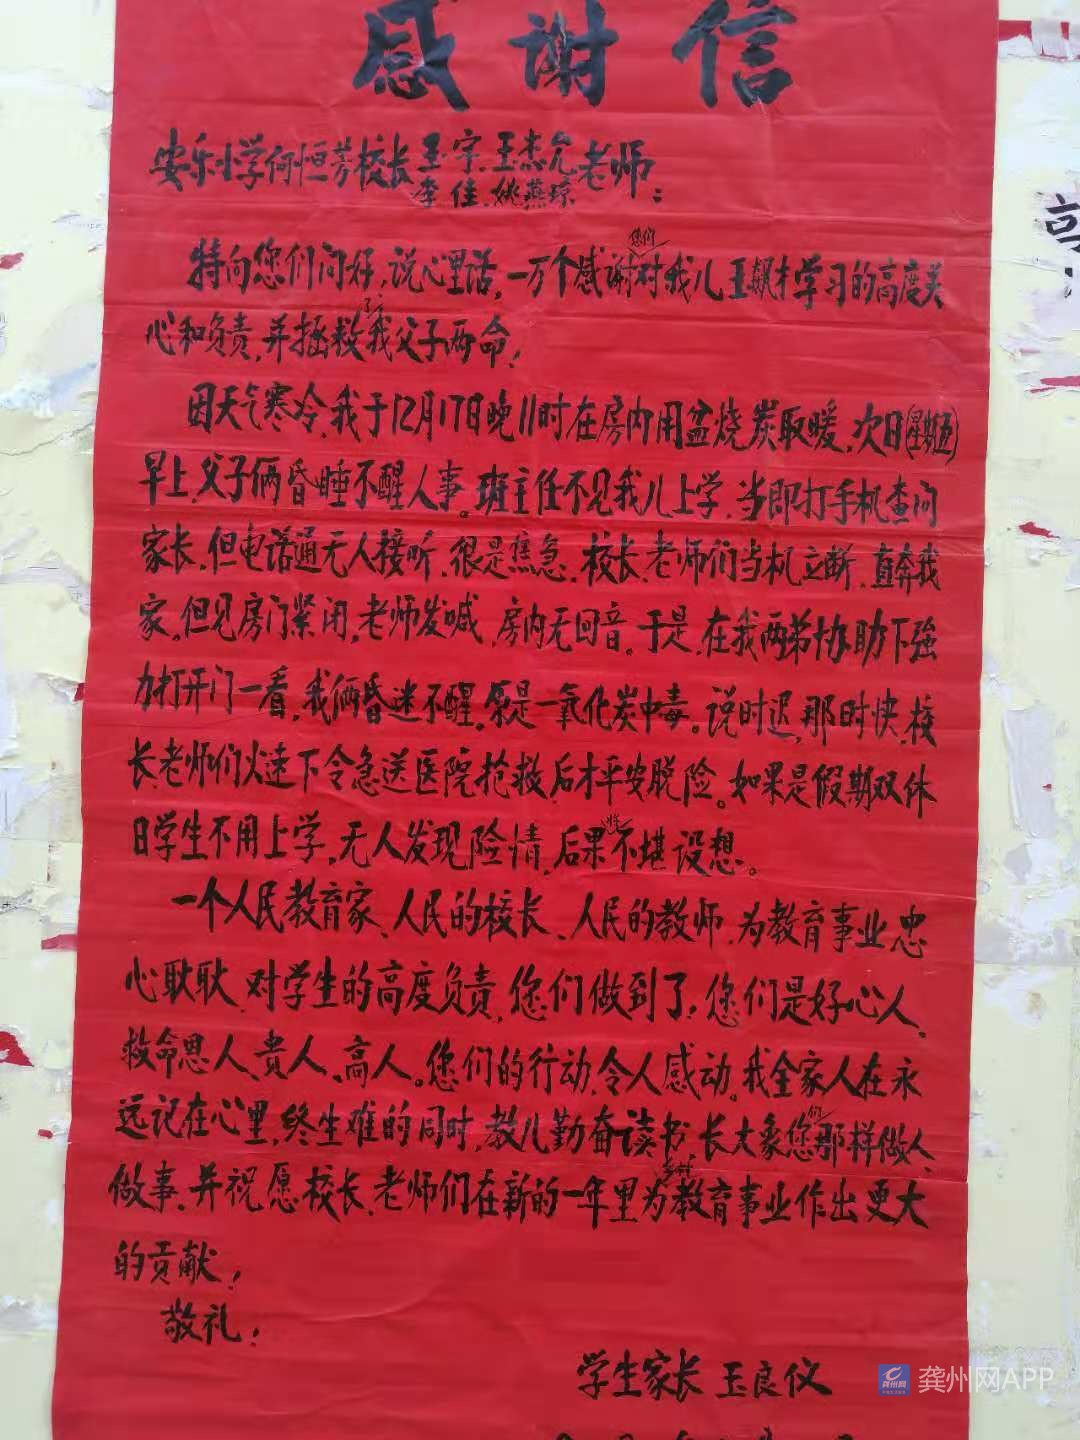 感谢信
安乐小学何恒芳校长玉宇、玉杰允老师：
李佳、姚燕琼
特向您们问好，说心里话，一万个感谢您们对我儿玉飙才学习的高度关
心和负责，并拯救了我父子两命！
因天气寒冷，我于12月17日晚11时在房内用盆烧炭取暖，次日(星期五)
早上，父子俩昏睡不醒人事。班主任不见我儿上学，当即打手机查问
家长，但电话通无人接听，很是焦急，校长、老师们当机立断，直奔我
家，但见房门紧闭，老师发喊，房内无回音。于是，在我两弟协助下强
力打开门一看，我俩昏迷不醒。原是一氧化炭中毒。说时迟，那时快，校
长、老师们火速下令急送医院抢救，后才平安脱险。如果是假期双休
日学生不用上学，无人发现险情，后果将不堪设想。
一个人民教育家、人民的校长、人民的教师，为教育事业忠
心耿耿，对学生的高度负责，您们做到了，您们是好心人、
救命恩人、贵人、高人。您们的行动，令人感动。我全家人在永
远记在心里，终生难的同时，教儿勤奋读书，长大象您们那样做人、
做事，并祝愿校长、老师们在新的一年里为乡村教育事业作出更大
的贡献！
敬礼！
学生家长 玉良仪
龚州网APP
龚州网